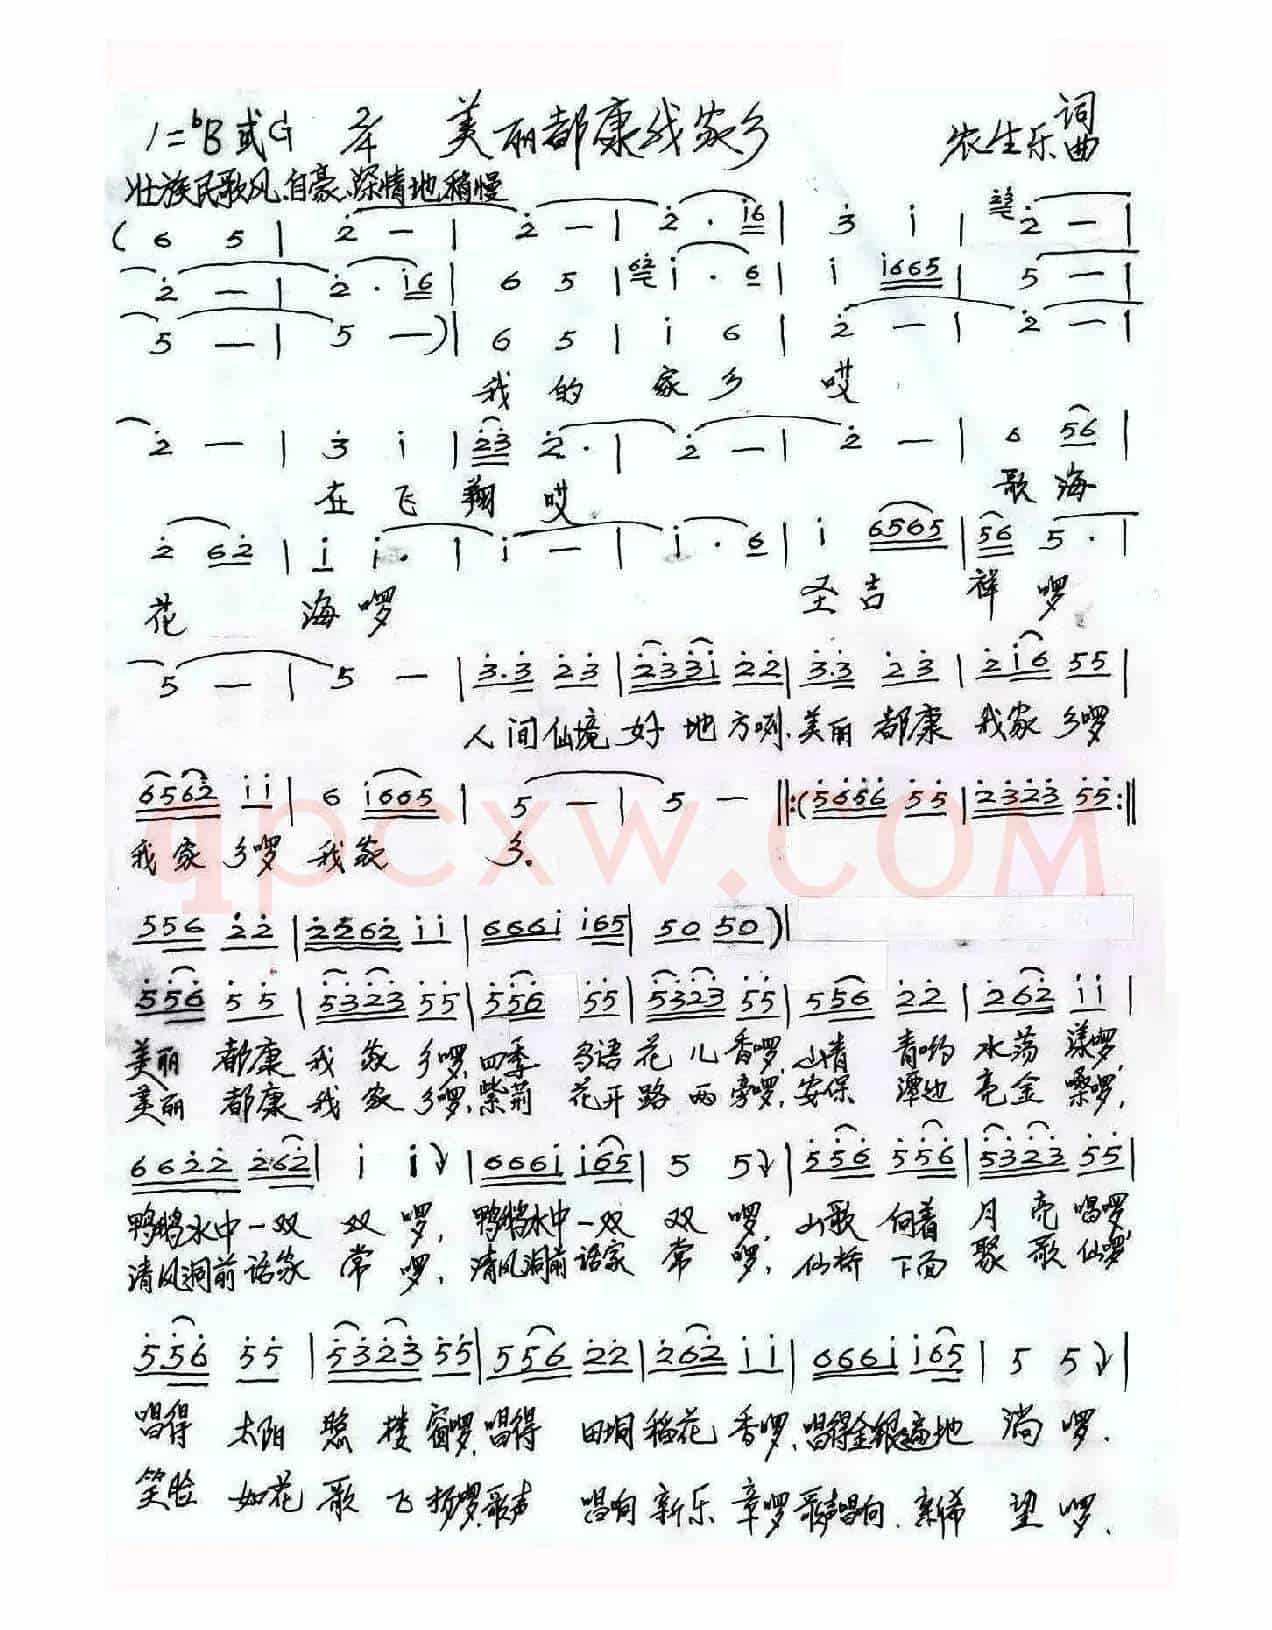 1=♭B或G 2/4 美丽都康我家乡 农生乐 词曲
壮族民歌风、自豪、深情地稍慢
(6 5 | 2̇ — | 2̇ — | 2̇ · i̇6 | 3̇ i̇ | 2̇ — |
2̇ — | 2̇ · i̇6 | 6 5 | i̇ · 6 | i̇ i̇665 | 5 — |
5 — | 5 —) | 6 5 | i̇ 6 | 2̇ — | 2̇ — |
我的 家乡 哎
2̇ — | 3̇ i̇ | 2̇3̇ 2̇ · | 2̇ — | 2̇ — | 6 56 |
在飞翔哎 歌海
2̇ 62̇ | i̇ i̇ · | i̇ — | i̇ · 6 | i̇ 6565 | 56 5 · |
花 海啰 圣吉祥啰
5 — | 5 — | 3̇·3̇ 2̇3̇ | 2̇3̇3̇i̇ 2̇2̇ | 3̇·3̇ 2̇3̇ | 2̇i̇6 55 |
人间仙境好地方咧、美丽都康我家乡啰
6562̇ i̇i̇ | 6 i̇665 | 5 — | 5 — ‖:(5656 55 | 2̇3̇2̇3̇ 55:‖
我家乡啰 我家 乡。
qpcxw.com
556 2̇2̇ | 2̇562̇ i̇i̇ | 666i̇ i̇65 | 50 50) |
5̇5̇6̇ 5̇5̇ | 5̇3̇2̇3̇ 5̇5̇ | 5̇5̇6̇ 5̇5̇ | 5̇3̇2̇3̇ 5̇5̇ | 556 2̇2̇ | 2̇62̇ i̇i̇ |
美丽都康我家乡啰,四季鸟语花儿香啰,山青青哟水荡漾啰,
美丽都康我家乡啰,紫荆花开路两旁啰,安保潭边亮金嗓啰,
662̇2̇ 2̇62̇ | i̇ i̇↘ | 666i̇ i̇65 | 5 5↘ | 5̇5̇6̇ 5̇5̇6̇ | 5̇3̇2̇3̇ 5̇5̇ |
鸭鹅水中一双双啰,鸭鹅水中一双双啰,山歌向着月亮唱啰
清风洞前话家常啰,清风洞前话家常啰,仙桥下面聚歌仙啰
5̇5̇6̇ 5̇5̇ | 5̇3̇2̇3̇ 5̇5̇ | 556 2̇2̇ | 2̇62̇ i̇i̇ | 666i̇ i̇65 | 5 5↘ |
唱得太阳照楼窗啰,唱得田垌稻花香啰,唱得金银遍地淌啰.
笑脸如花歌飞扬啰,歌声唱响新乐章啰歌声唱响、新希望啰、